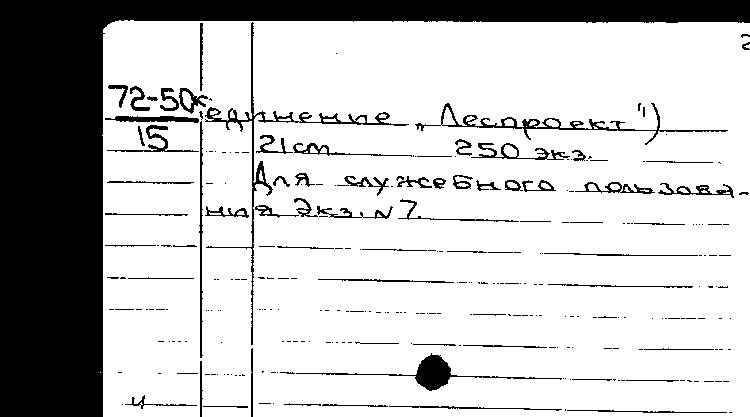 2
72-50к
15
единение „Леспроект")
21 cm 250 экз.
Для служебного пользова-
ния Экз. N 7.
ч